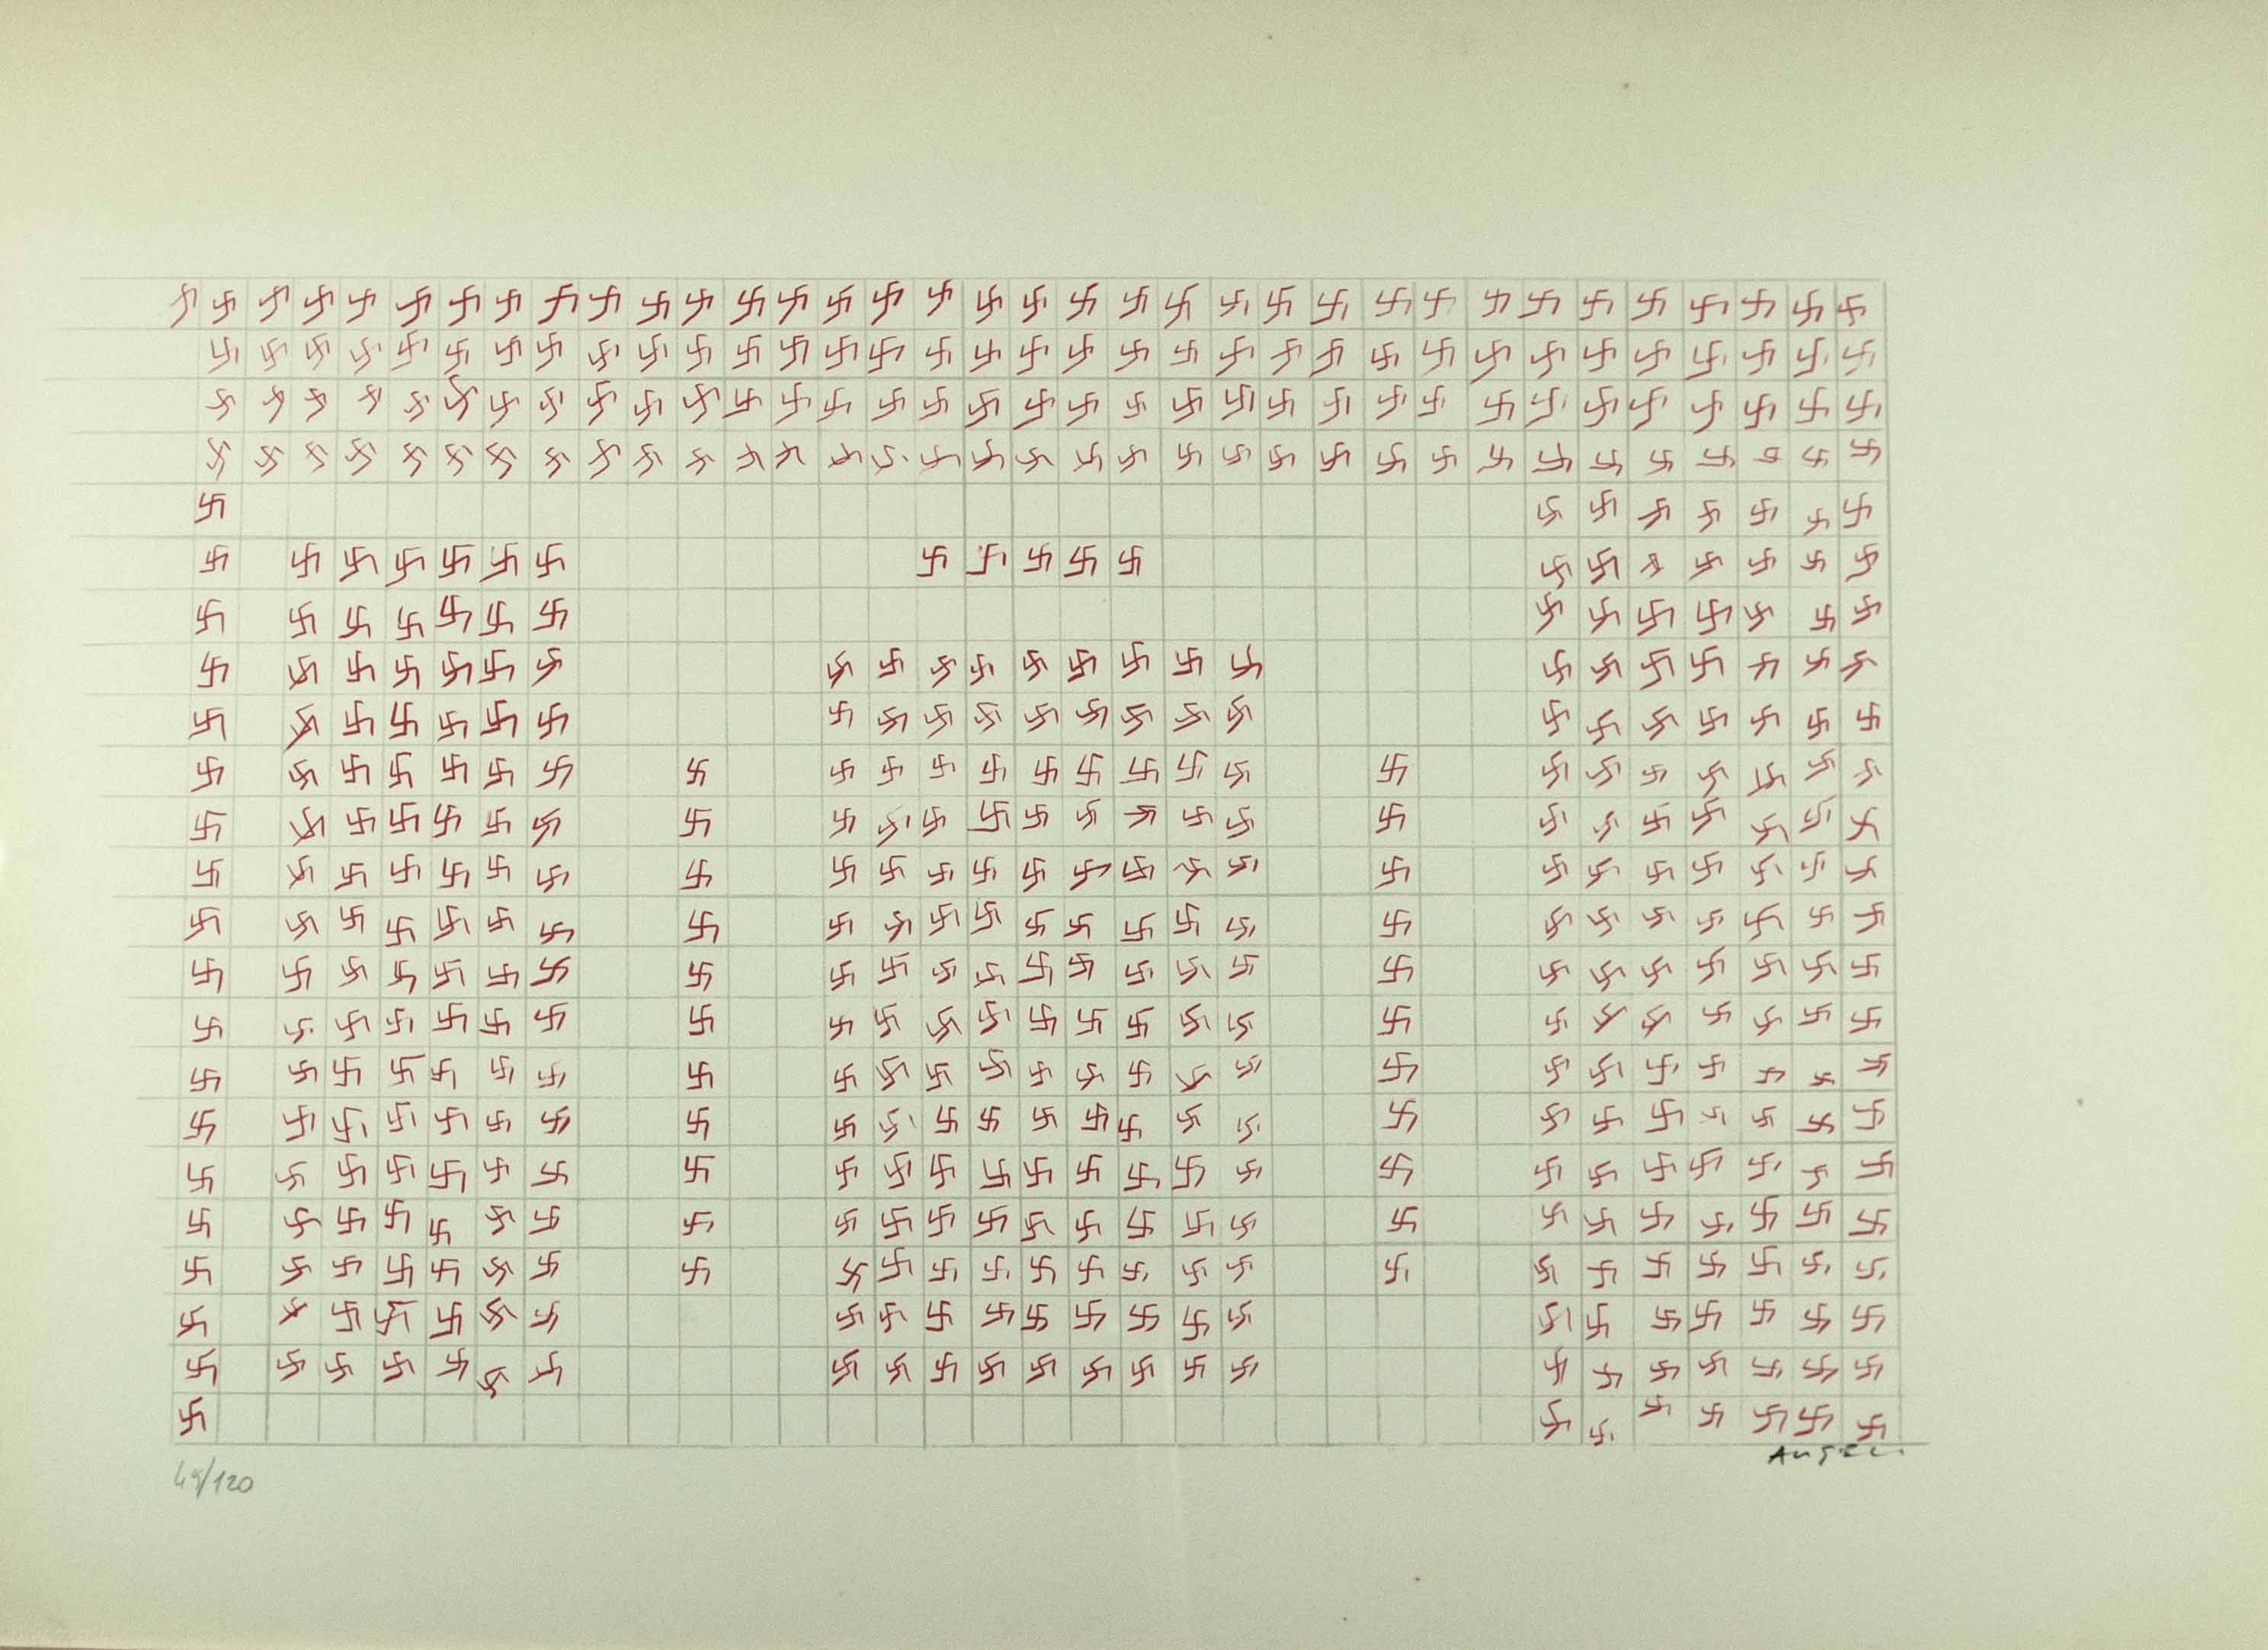 49/120
ANGELI